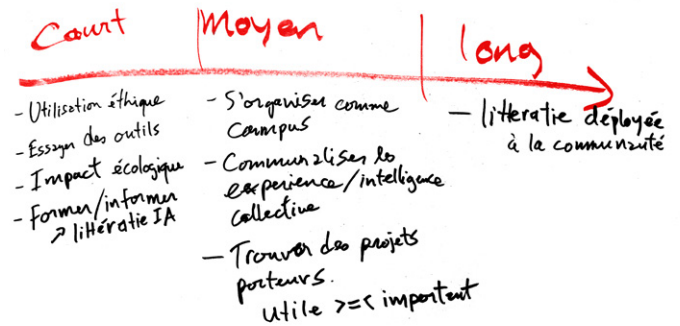 Court
- Utilisation éthique
- Essayer des outils
- Impact écologique
- Former/informer
↗ littératie IA
Moyen
- S'organiser comme
campus
- Communaliser les
expérience/intelligence
collective
- Trouver des projets
porteurs.
utile >=< important
long
- litteratie déployée
à la communauté